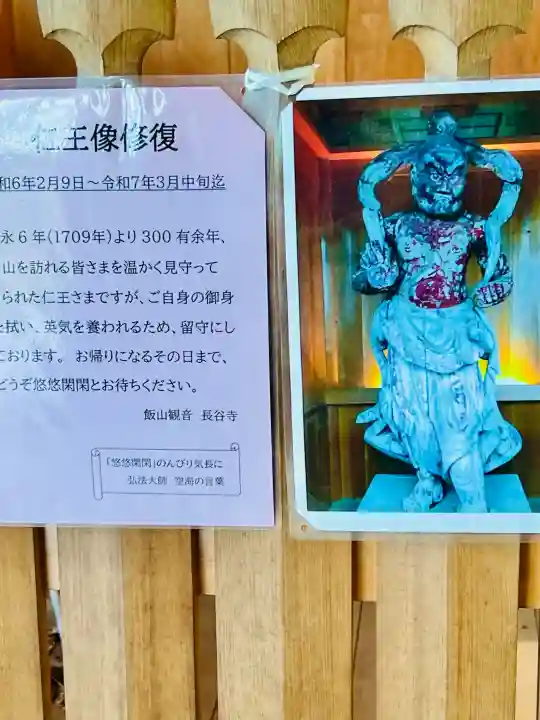 仁王像修復
和6年2月9日～令和7年3月中旬迄
永6年(1709年)より300有余年、
山を訪れる皆さまを温かく見守って
られた仁王さまですが、ご自身の御身
を拭い、英気を養われるため、留守にし
ております。お帰りになるその日まで、
どうぞ悠悠閑閑とお待ちください。
飯山観音 長谷寺
「悠悠閑閑」のんびり気長に
弘法大師 空海の言葉